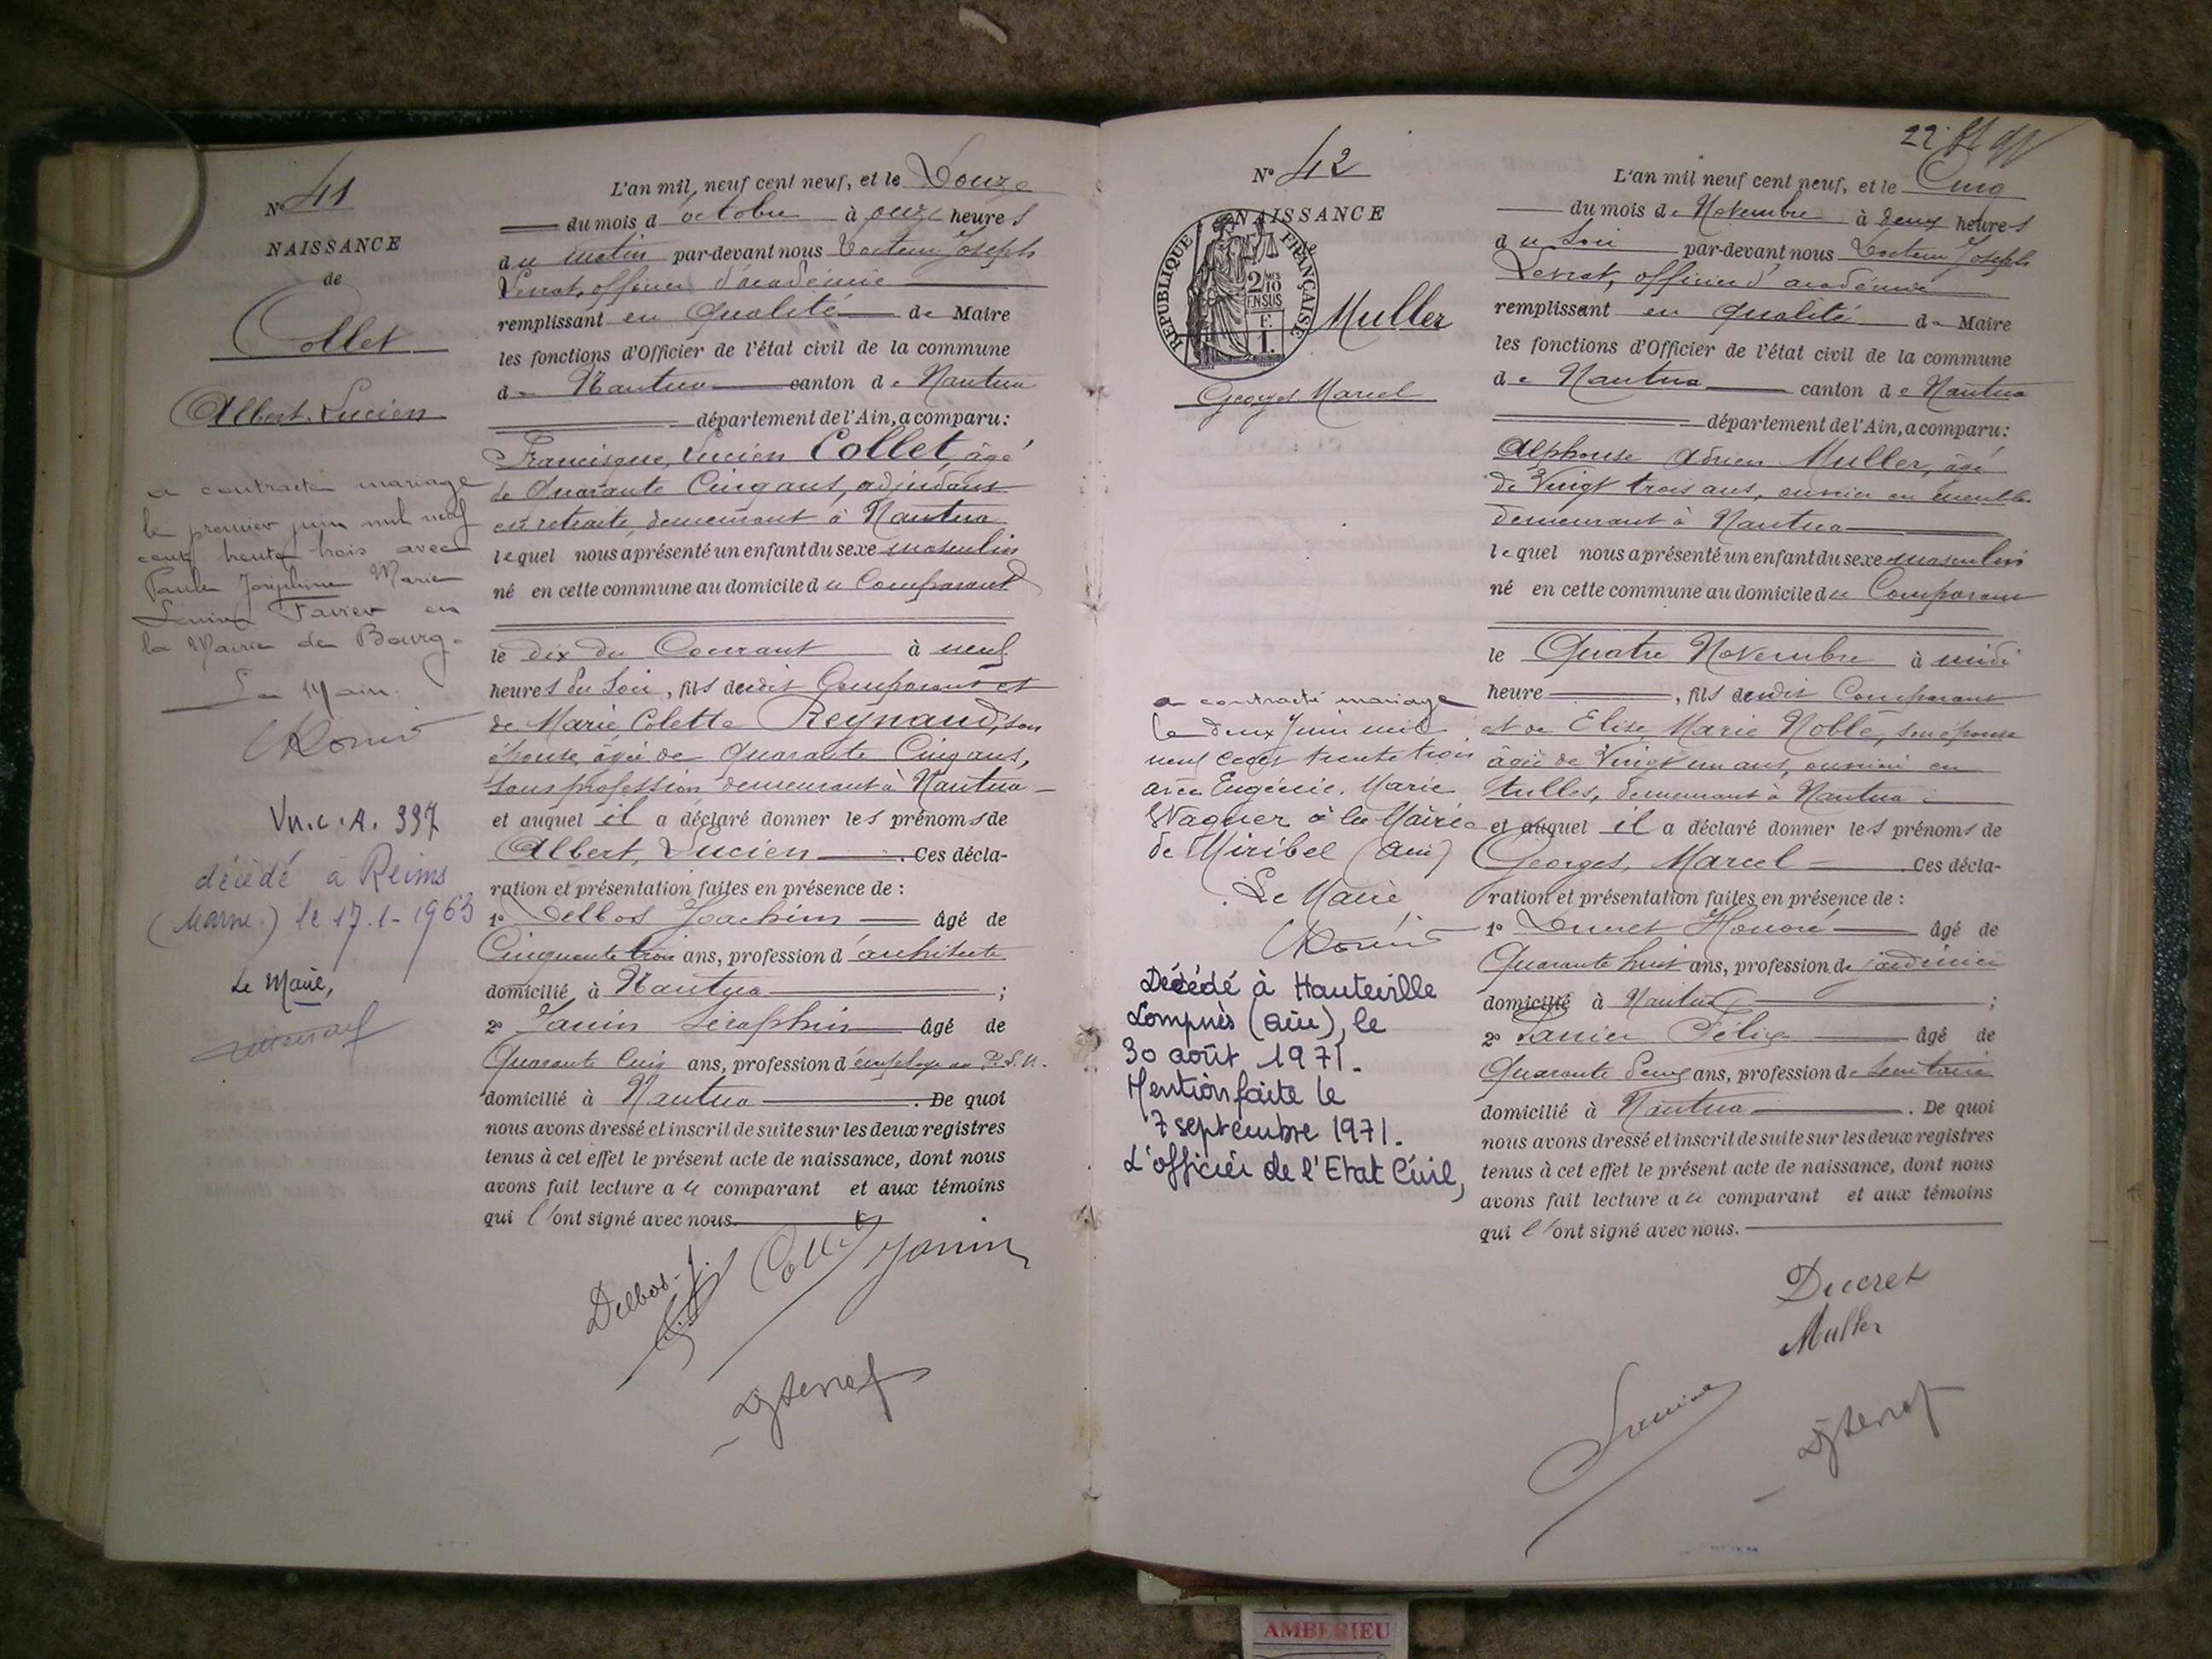 N° 41
NAISSANCE
de
Collet
Albert Lucien
a contracté mariage
le premier juin mil neuf
cent trente trois avec
Paule Joséphine Marie
Louise Favier en
la Mairie de Bourg.
Le Maire:
Vu.c.A. 337
décédé à Reims
(Marne) le 17.1-1963
Le Maire,
L'an mil neuf cent neuf, et le Douze
du mois d'octobre à onze heures
du matin par-devant nous Docteur Joseph
officier d'académie
remplissant en qualité de Maire
les fonctions d'Officier de l'état civil de la commune
de Nantua canton de Nantua
département de l'Ain, a comparu:
Francisque, Lucien Collet, âgé
de Quarante Cinq ans, adjudant
en retraite, demeurant à Nantua
lequel nous a présenté un enfant du sexe masculin
né en cette commune au domicile du Comparant
le dix du Courant à neuf
heures du Soir, fils dudit Comparant et
de Marie Colette Reynaud, son
épouse, âgée de quarante Cinq ans,
sans profession demeurant à Nantua
et auquel il a déclaré donner les prénoms de
Albert, Lucien. Ces décla-
ration et présentation faites en présence de :
1° Delbos Joachim âgé de
Cinquante trois ans, profession d'architecte
domicilié à Nantua ;
2° Janin Séraphin âgé de
Quarante Cinq ans, profession d'employé au P.L.M.
domicilié à Nantua. De quoi
nous avons dressé et inscrit de suite sur les deux registres
tenus à cet effet le présent acte de naissance, dont nous
avons fait lecture au comparant et aux témoins
qui l'ont signé avec nous.
Delbos. J. Collet Janin
22
N° 42
NAISSANCE
RÉPUBLIQUE FRANÇAISE
2/10
EN SUS
F.
1.
Muller
Georges Marcel
a contracté mariage
le deux Juin mil
neuf cent trente trois
avec Eugénie. Marie
Wagner à la Mairie
de Miribel (Ain)
Le Maire
Décédé à Hauteville
Lompnès (Ain), le
30 août 1971.
Mention faite le
7 septembre 1971.
L'officier de l'Etat Civil,
L'an mil neuf cent neuf, et le Cinq
du mois de Novembre à deux heures
du Soir par-devant nous Docteur Joseph
officier d'académie
remplissant en qualité de Maire
les fonctions d'Officier de l'état civil de la commune
de Nantua canton de Nantua
département de l'Ain, a comparu:
Alphonse Adrien Muller, âgé
de Vingt trois ans, ouvrier en meubles
demeurant à Nantua
lequel nous a présenté un enfant du sexe masculin
né en cette commune au domicile du Comparant
le Quatre Novembre à midi
heure, fils dudit Comparant
et de Elise, Marie Noblé, son épouse
âgée de Vingt un ans, ouvrière en
tulles, demeurant à Nantua
et auquel il a déclaré donner les prénoms de
Georges, Marcel. Ces décla-
ration et présentation faites en présence de :
1° Ducret Honoré âgé de
Quarante huit ans, profession de jardinier
domicilié à Nantua ;
2° Félix âgé de
Quarante Deux ans, profession de
domicilié à Nantua. De quoi
nous avons dressé et inscrit de suite sur les deux registres
tenus à cet effet le présent acte de naissance, dont nous
avons fait lecture au comparant et aux témoins
qui l'ont signé avec nous.
Ducret
Muller
AMBERIEU